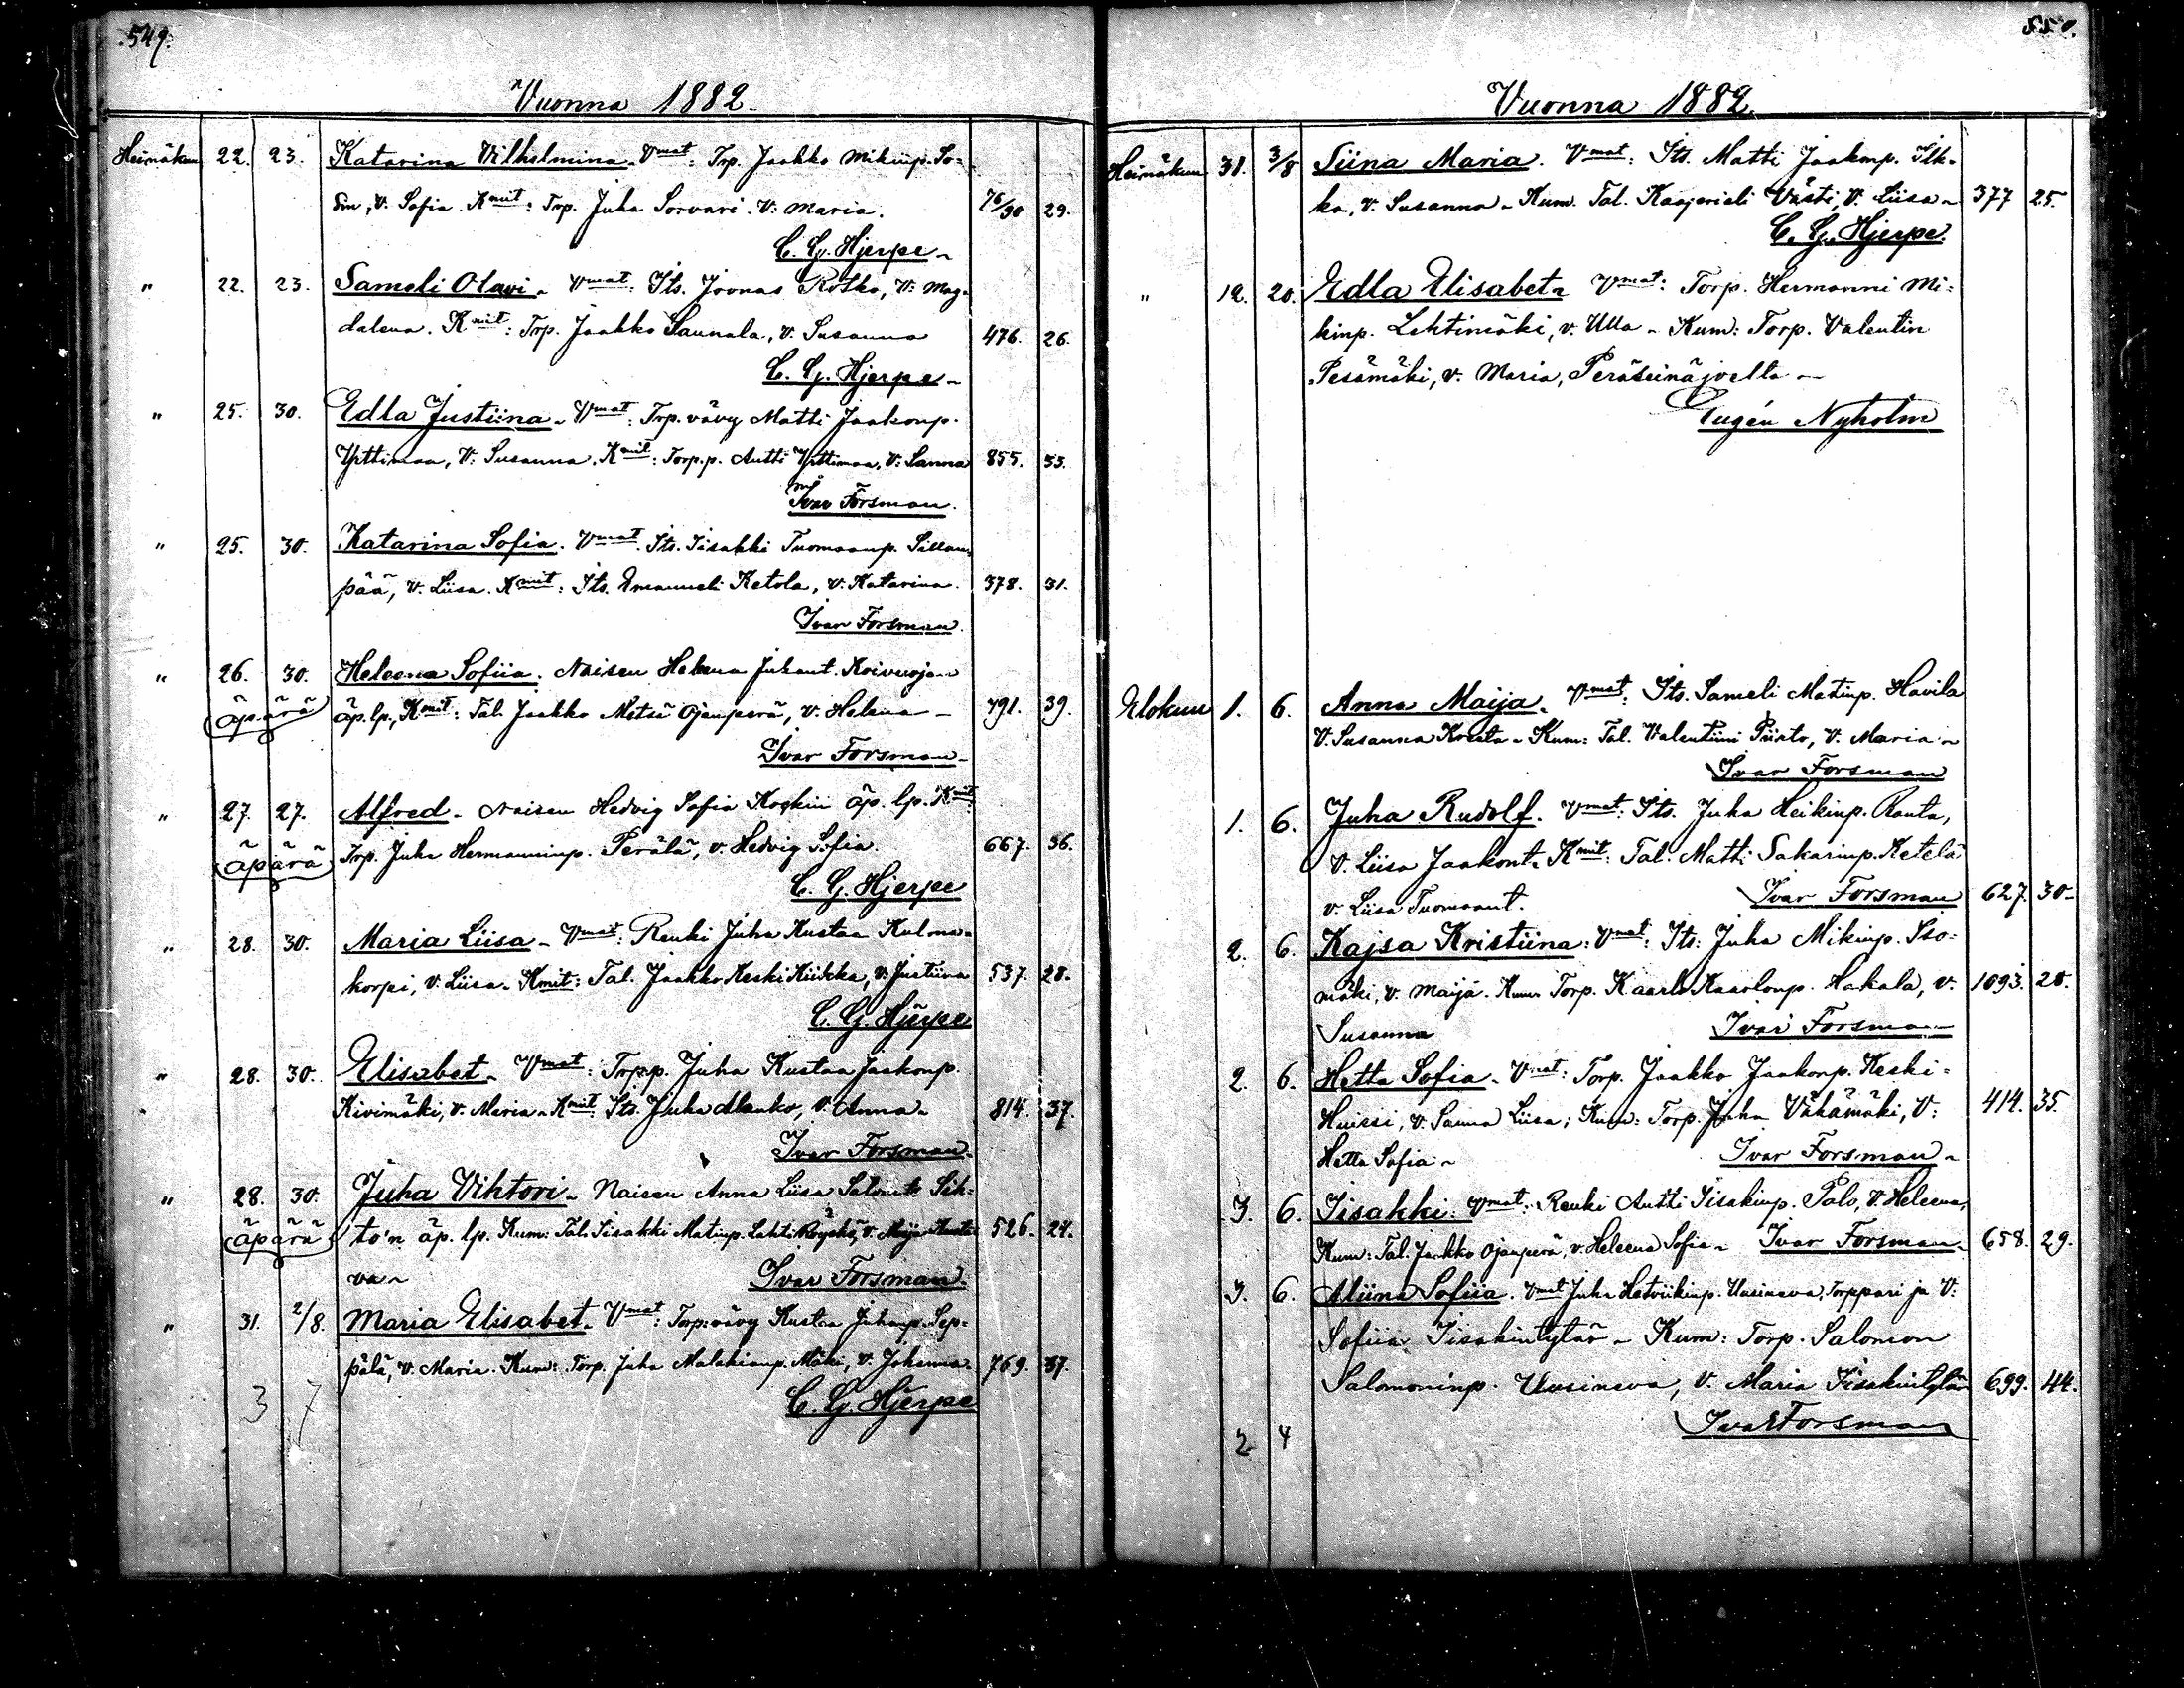 549.
Vuonna 1882.
Heinäkuu 22. 23. Katarina Vilhelmina. Vmat: Trp. Jaakko Mikinp. So-
sin, V. Sofia. Kmit: Trp. Juha Sorvari. V: Maria. 76/90 29.
C. G. Hjerpe
" 22. 23. Sameli Olavi. Vmat: Its. Joonas Rotko, V: Mag-
dalena. Kmit: Trp. Jaakko Saunala, v. Susanna 476. 26.
C. G. Hjerpe
" 25. 30. Edla Justiina. Vmat: Trp. vävy Matti Jaakonp.
Yrttimaa, V: Susanna. Kmit: Torp.p. Antti Yrttimaa, V: Sanna 855. 33.
Ivar Forsman.
" 25. 30. Katarina Sofia. Vmat. Its. Iisakki Tuomaanp. Sillan-
pää, v. Liisa. Kmit: Its. Emanueli Ketola, v. Katarina. 378. 31.
Ivar Forsman.
" 26. 30. Heleena Sofiia. Naisen Helena Juhant. Koivuojan
äpärä äp. lp., Kmit: Tal. Jaakko Metsä Ojanperä, v. Helena 791. 39.
Ivar Forsman
" 27. 27. Alfred. Naisen Hedvig Sofia Koskin äp. lp. Kmit:
äpärä Trp. Juha Hermanninp. Perälä, v. Hedvig Sofia. 667. 36.
C. G. Hjerpe
" 28. 30. Maria Liisa. Vmat: Renki Juha Kustaa Kulma-
korpi, v. Liisa. Kmit: Tal. Jaakko Keski Kiikka, v. Justiina 537. 28.
C. G. Hjerpe
" 28. 30. Elisabet. Vmat: Trp.p. Juha Kustaa Jaakonp.
Kivimäki, v. Maria. Kmit: Its. Juha Alanko, v. Anna 814. 37.
Ivar Forsman.
" 28. 30. Juha Vihtori. Naisen Anna Liisa Salomt. Sih-
äpärä to'n äp. lp. Kum: Tal. Iisakki Matinp. Lahti v. Maija 526. 24.
va
Ivar Forsman.
" 31. 2/8. Maria Elisabet. Vmat: Torp. vävy Kustaa Juhanp. Sep-
pälä, v. Maria. Kum: Torp. Juha Malakianp. Mäki, v. Johanna. 769. 37.
C. G. Hjerpe
3 7
550.
Vuonna 1882.
Heinäkuu 31. 3/8 Siina Maria. Vmat: Its. Matti Jaakonp. Ilk-
ka, v. Susanna. Kum. Tal. Kaaprieli Västi, V. Liisa 377 25.
C. G. Hjerpe.
" 12. 20. Edla Elisabet. Vmat: Torp. Hermanni Mi-
kinp. Lehtimäki, v. Ulla. Kum: Torp. Valentin
Pesämäki, v. Maria, Peräseinäjoella
Eugén Nyholm
Elokuu 1. 6. Anna Maija. Vmat: Its. Sameli Matinp. Havila
V. Susanna Kum: Tal. Valentiini Piirto, v. Maria
Ivar Forsman
1. 6. Juha Rudolf. Vmat: Its. Juha Heikinp. Ranta,
V. Liisa Jaakont. Kmit: Tal. Matti Sakarinp. Ketelä
v. Liisa Tuomaant. Ivar Forsman 627. 30.
2. 6. Kajsa Kristiina: Vmat: Its: Juha Mikinp. Iso-
mäki, v. Maija. Kum Torp. Kaarlo Kaarlonp. Hakala, v. 1093. 28.
Susanna Ivar Forsman
2. 6. Hetta Sofia. Vmat: Torp. Jaakko Jaakonp. Keski-
Huissi, v. Sanna Liisa; Kum: Torp. Juha Vähämäki, V: 414. 35.
Hetta Sofia Ivar Forsman
3. 6. Iisakki: Vmat: Renki Antti Iisakinp. Palo, v. Heleena,
Kum: Tal. Jaakko Ojanperä, v. Heleena Sofia Ivar Forsman 658. 29.
3. 6. Aliina Sofiia. Vmat Juha Hetviikinp. Uusineva, Torppari ja V:
Sofiia Iisakintytär. Kum: Torp. Salomon
Salomoninp. Uusineva, v. Maria Iisakintytär 699. 44.
Ivar Forsman
2 4